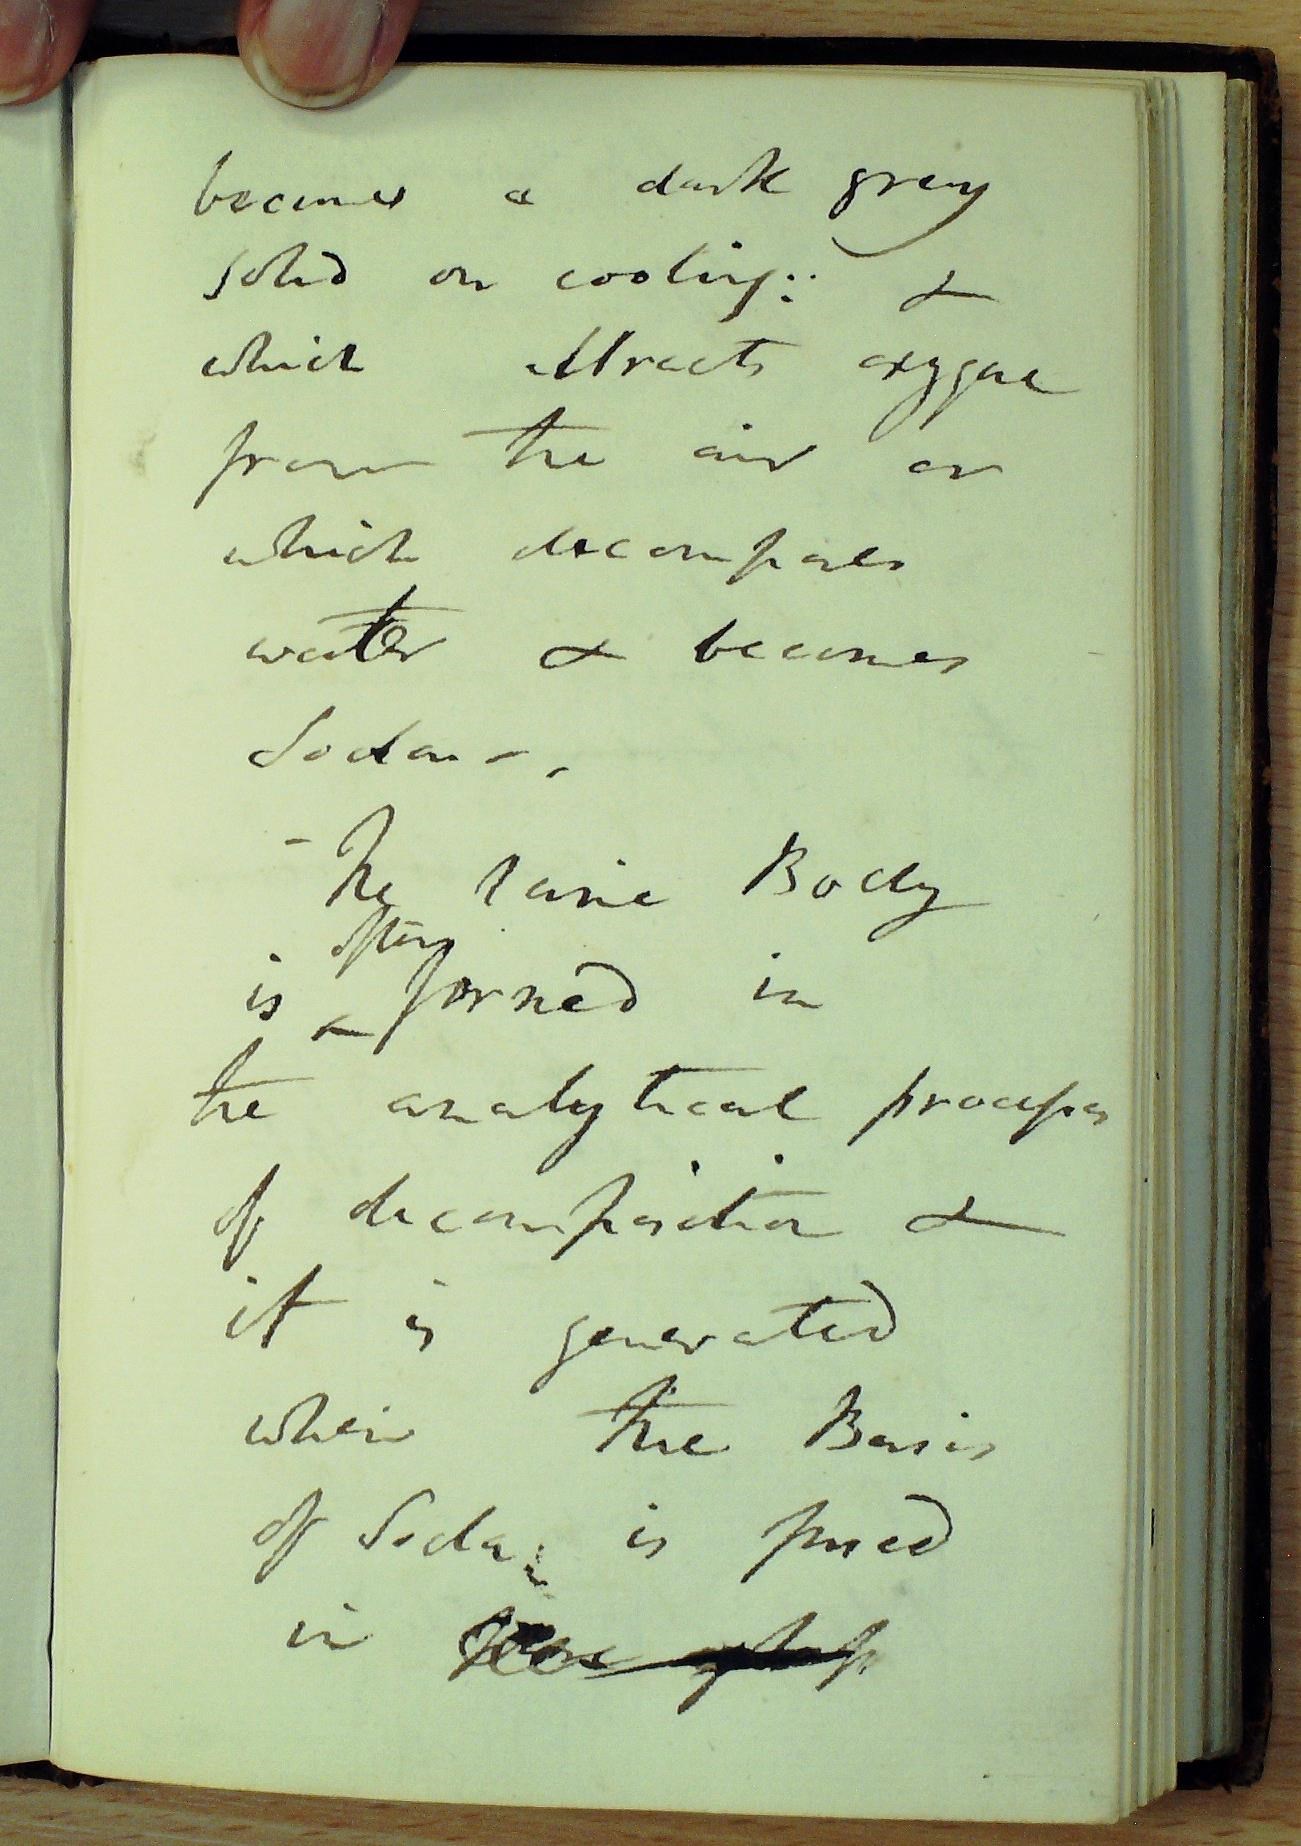 becomes a dark grey
solid on cooling: &
which attracts oxygene
from the air or
which decomposes
water & becomes
Soda -.
- The same Body
often
is formed in
the analytical processes
of decomposition &
it is generated
when the Basis
of Soda is fused
in glass